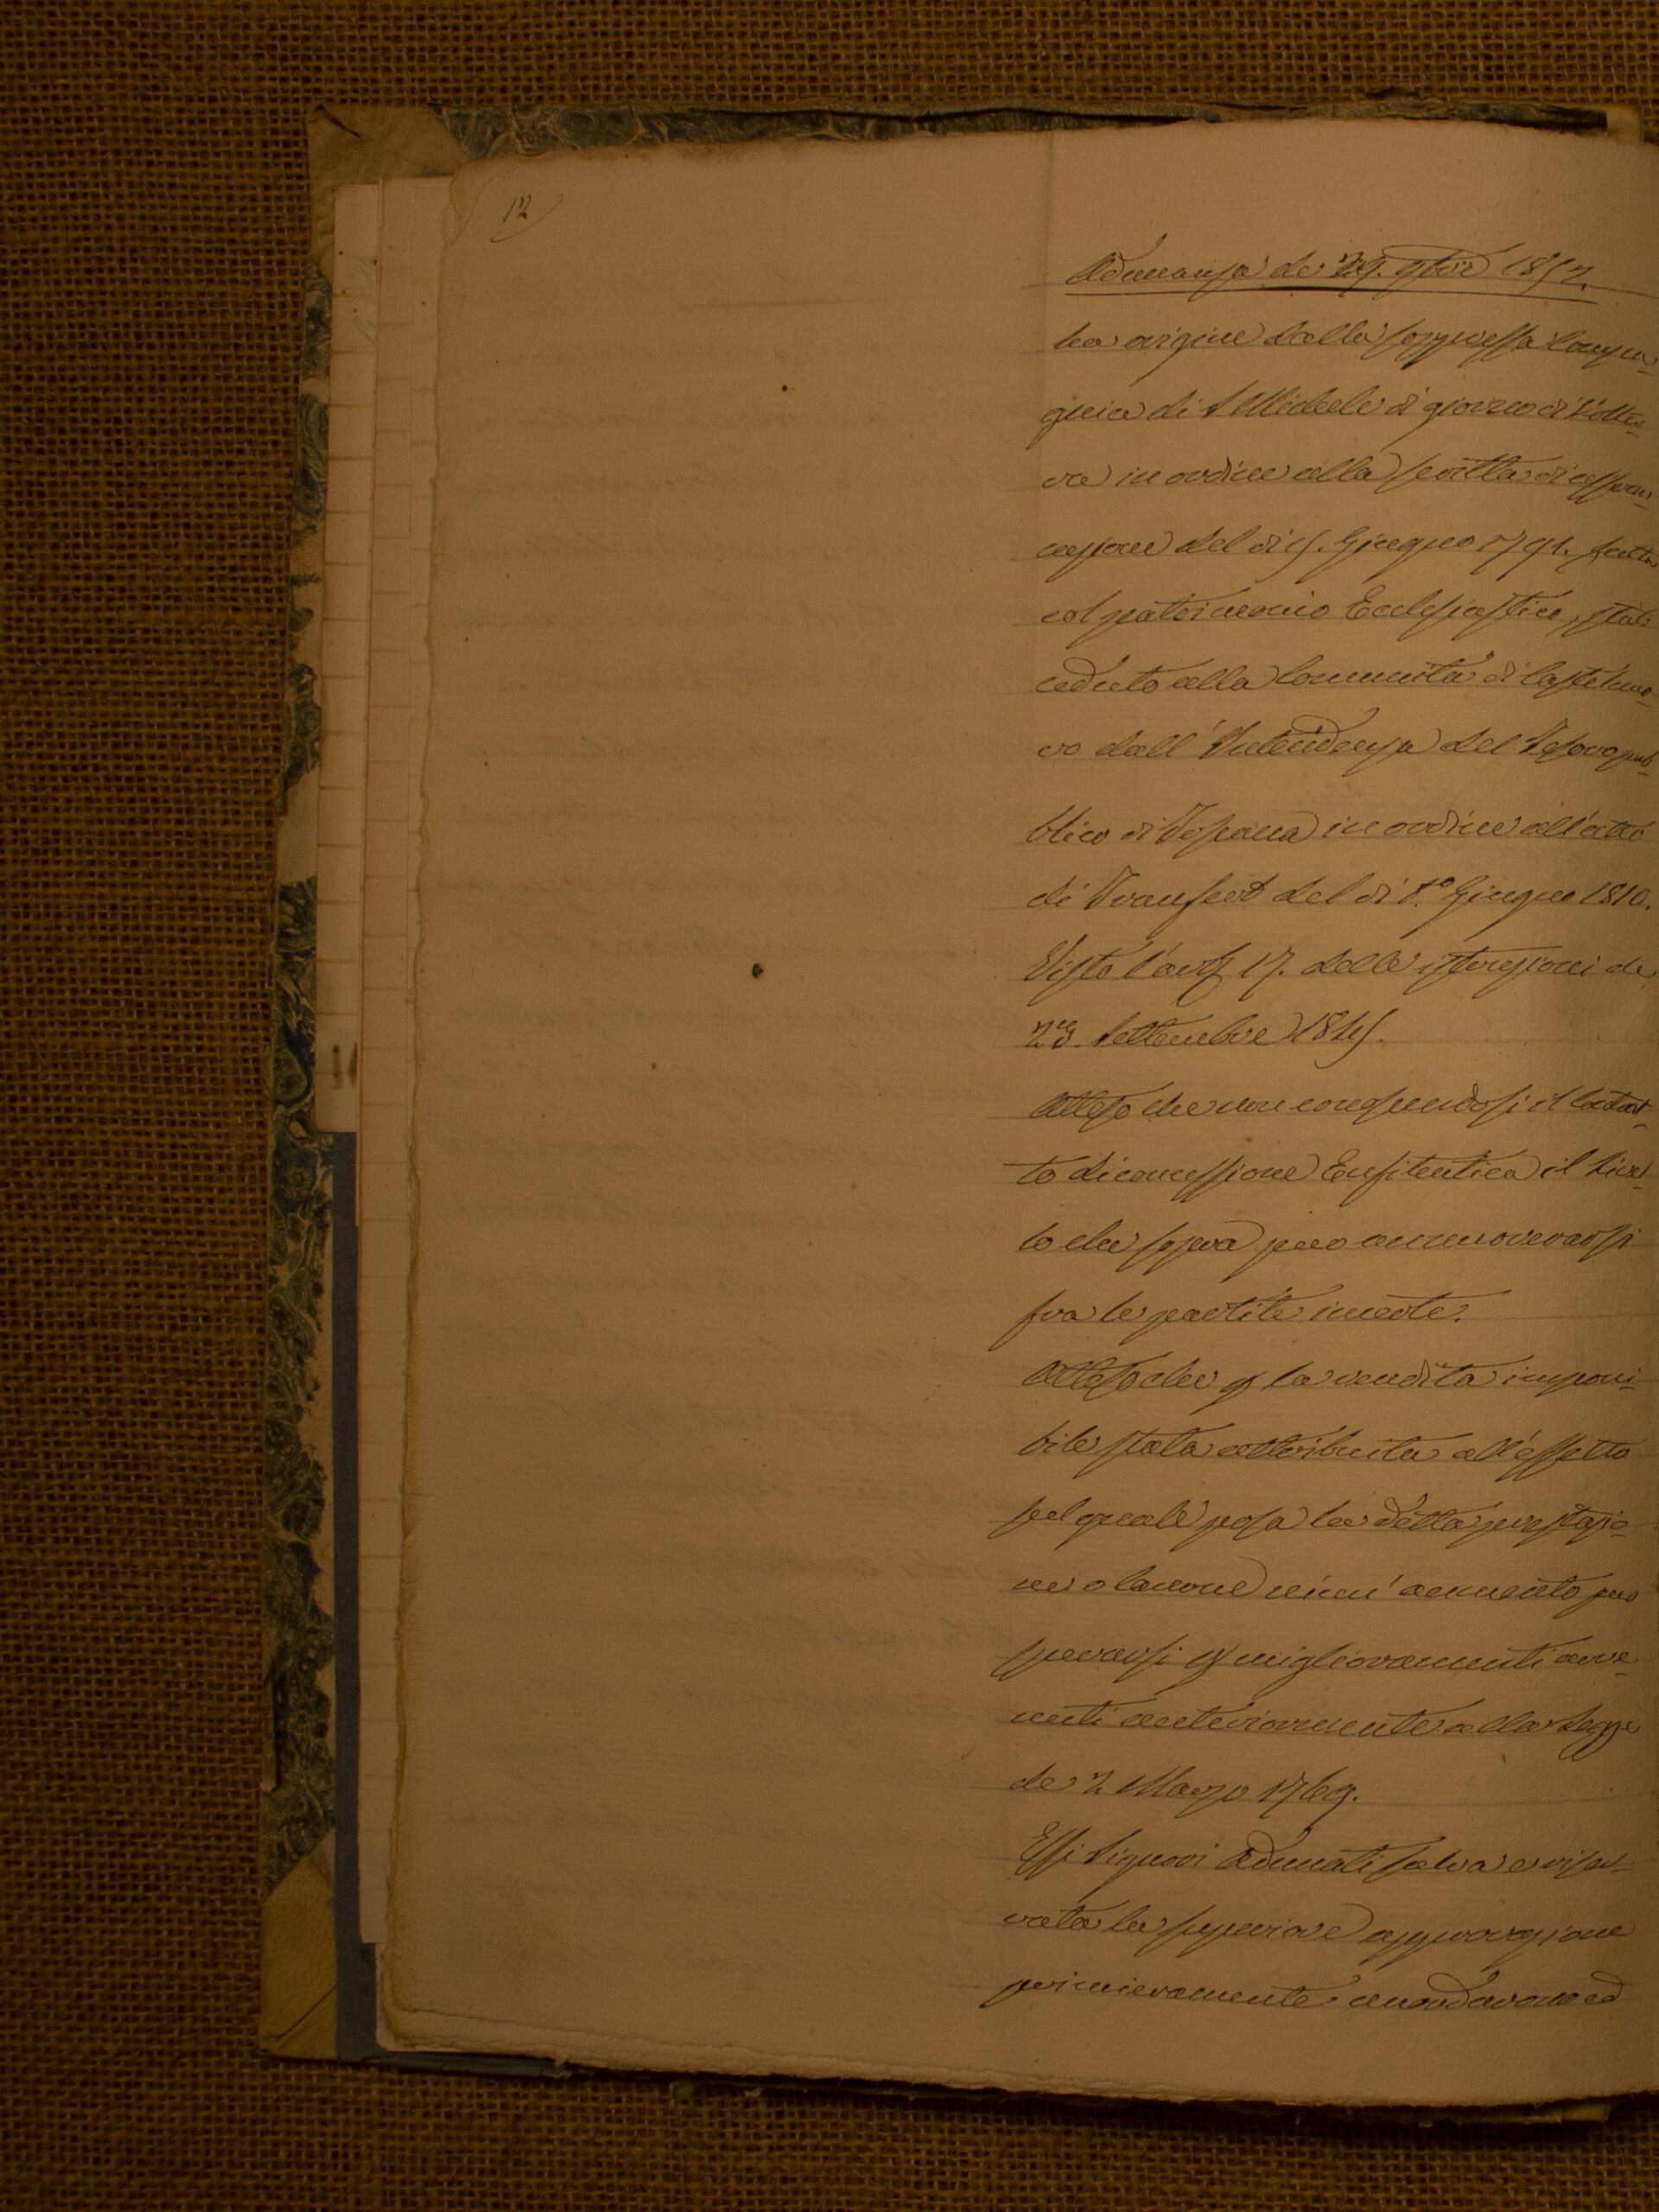 12
Adunanza de 29. 9bre 1852.
ha origine dalla soppressa Compa-
gnia di S Michele di giorno di Volter-
ra in ordine alla scritta di assegn-
azione del di 5. Giugno 1791. fatta
col patrimonio Ecclesiastico, stato
ceduto alla Comunità di Castelnuo-
vo dall'Intendenza del Tesoro pub-
blico di Toscana in ordine all'atto
di Transfert del di 1.o Giugno 1810.
Visto l'art 17. delle istruzioni de
29. Settembre 1845.
Atteso che non conoscendosi il contrat-
to di concessione Enfiteutica il livel-
lo che sopra può annoverarsi
fra le partite incerte.
Atteso che p la rendita imponi-
bile stata attribuita all'effetto
sul quale posa la detta prestazio-
ne o canone niun aumento può
sperarsi p miglioramenti avve-
nuti anteriormente alla Legge
de 2 Marzo 1769.
Essi Signori Adunati salva e riser-
vata la superiore approvazione
primieramente annodarono ed